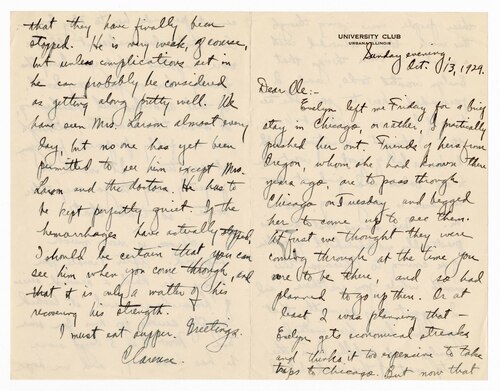 that they have finally been
stopped. He is very weak, of course,
but unless complications set in
he can probably be considered
as getting along pretty well. We
have seen Mrs. Larson almost every
day, but no one has yet been
permitted to see him except Mrs.
Larson and the doctors. He has to
be kept perfectly quiet. If the
hemorrhages have actually stopped,
I should be certain that you can
see him when you come through, and
that it is only a matter of his
recovering his strength.
I must eat supper. Greetings.
Clarence.
UNIVERSITY CLUB
URBANA, ILLINOIS
Sunday evening,
Oct. 13, 1929.
Dear Ole:-
Evelyn left me Friday for a brief
stay in Chicago, or rather, I practically
pushed her out. Friends of hers from
Oregon, whom she had known there
years ago, are to pass through
Chicago on Tuesday and begged
her to come up to see them.
At first we thought they were
coming through at the time you
were to be there and so had
planned to go up then. Or at
least I was planning that -
Evelyn gets economical streaks
and thinks it too expensive to take
trips to Chicago. But now that